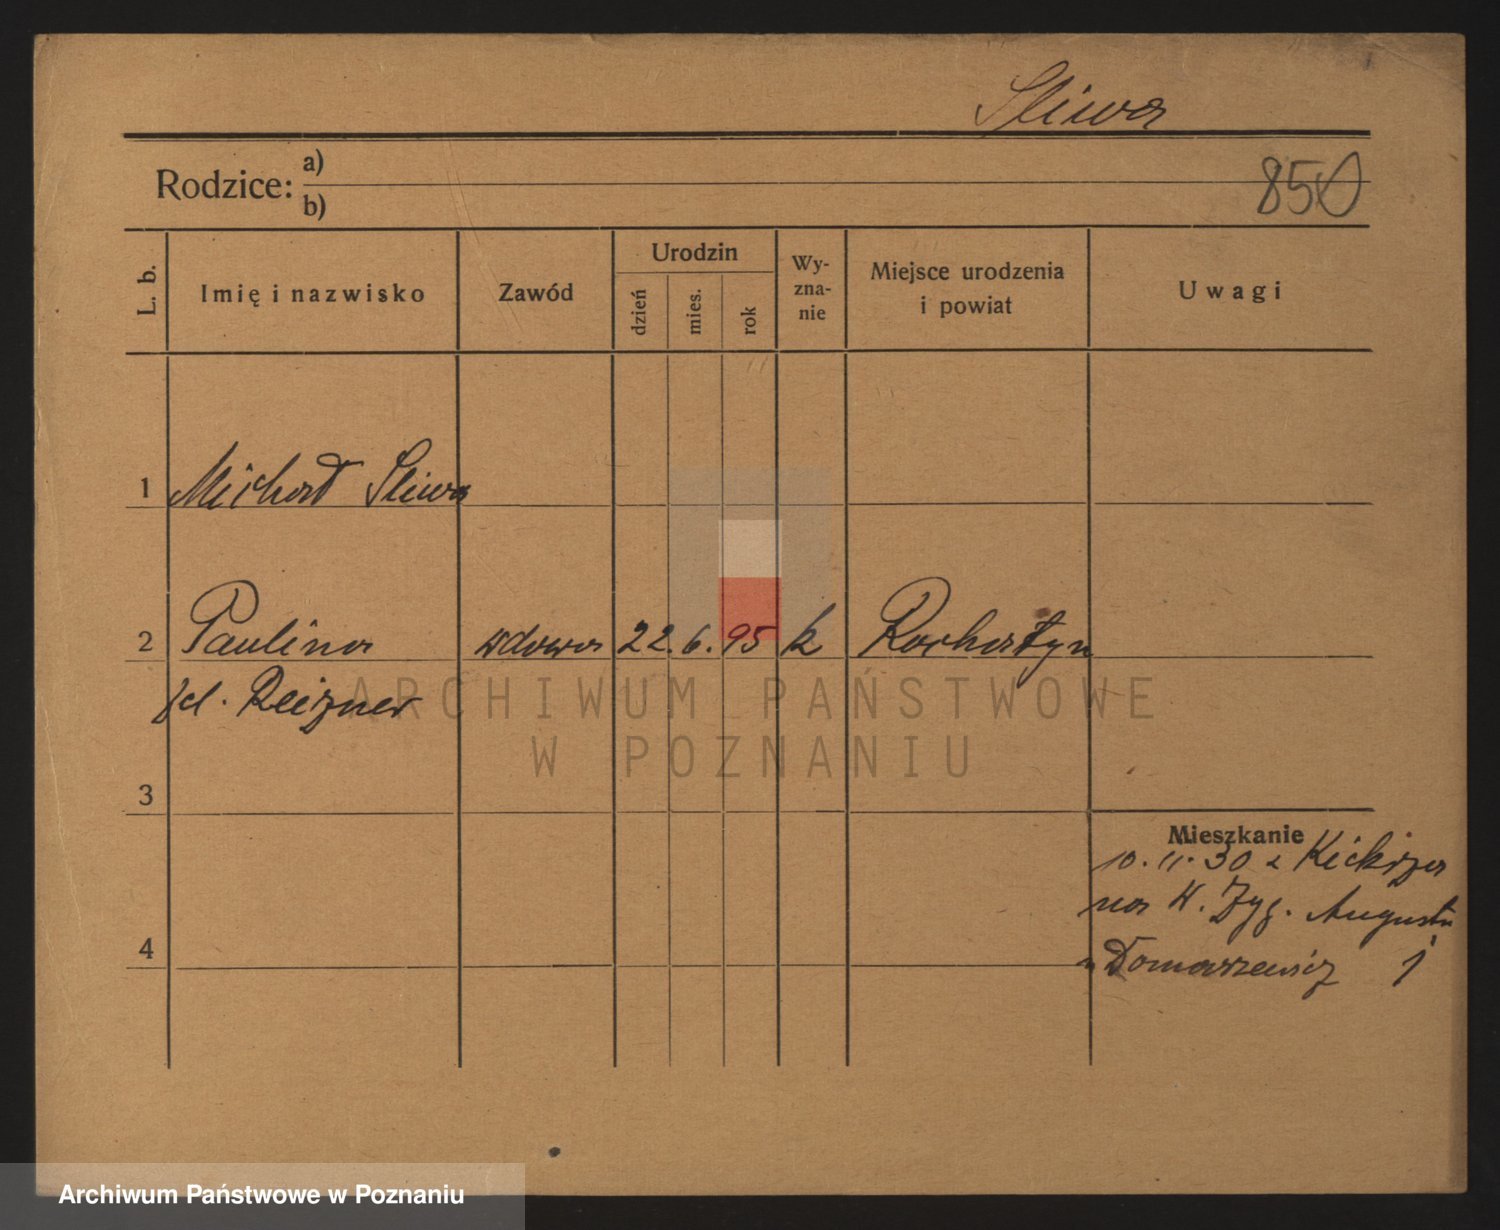 Sliwa
Rodzice: a)
b)
850
L. b.
Imię i nazwisko
Zawód
Urodzin
dzień
mies.
rok
Wy-
zna-
nie
Miejsce urodzenia
i powiat
Uwagi
1 Michał Sliwa
2 Paulina wdowa 22. 6. 95 k Rochatyn
Reizner
3
Mieszkanie
10. 11. 30 z Kickiego
na W. Zyg. Augusta
4
Domaszewicz 1
ARCHIWUM PAŃSTWOWE
W POZNANIU
Archiwum Państwowe w Poznaniu